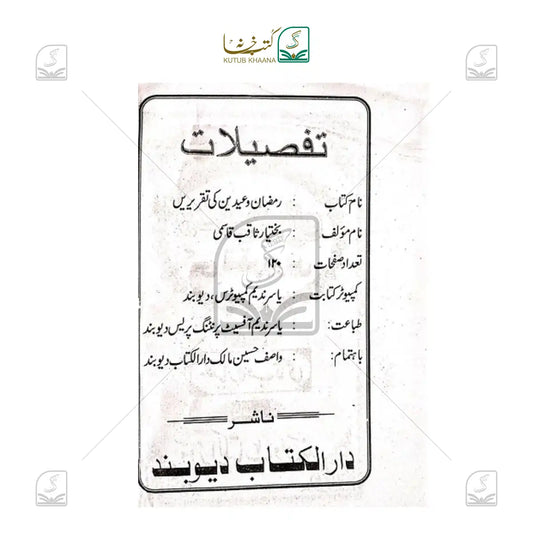 کتب خانہ
KUTUB KHAANA
تفصیلات
نام کتاب : رمضان و عیدین کی تقریریں
نام مؤلف : بختیار ثاقب قاسمی
تعداد صفحات : ۱۲۰
کمپیوٹر کتابت : یاسر ندیم کمپیوٹرس، دیوبند
طباعت : یاسر ندیم آفسیٹ پرنٹنگ پریس دیوبند
باہتمام : واصف حسین مالک دارالکتاب دیوبند
ناشر
دارالکتاب دیوبند